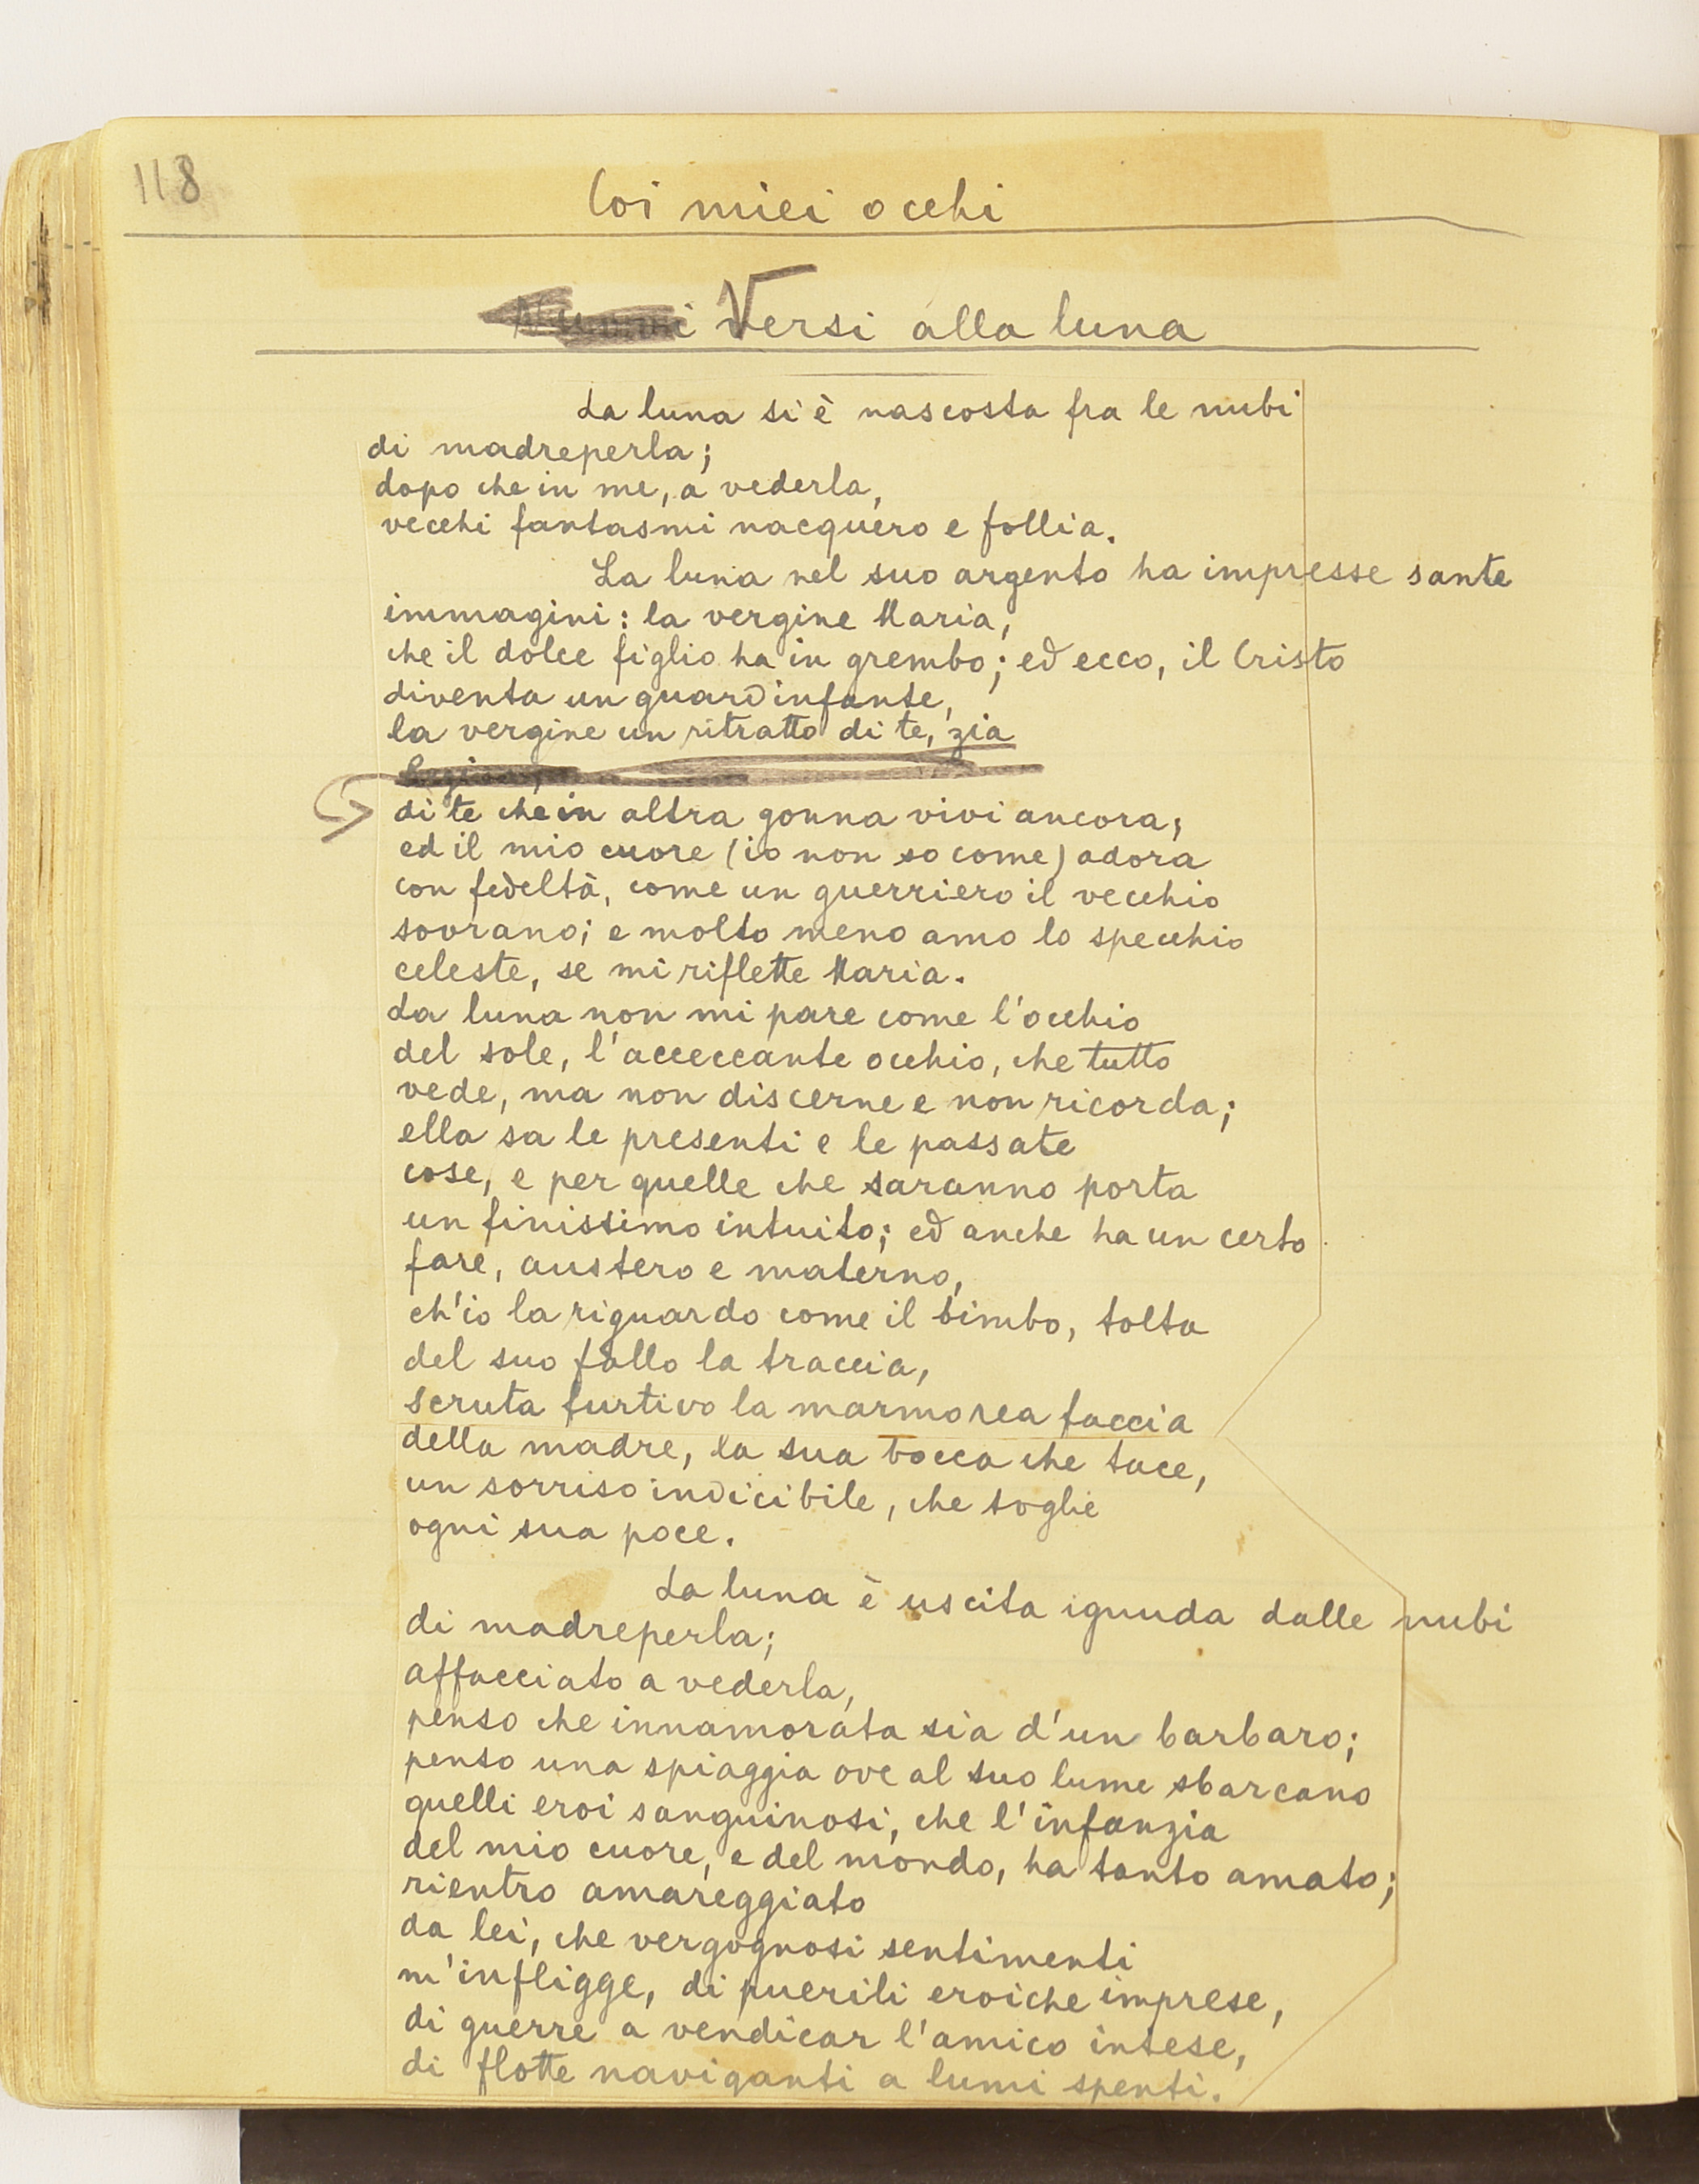 118
Coi miei occhi
Nuovi Versi alla luna
La luna si è nascosta fra le nubi
di madreperla;
dopo che in me, a vederla,
vecchi fantasmi nacquero e follia.
La luna nel suo argento ha impresse sante
immagini: la vergine Maria,
che il dolce figlio ha in grembo; ed ecco, il Cristo
diventa un guardinfante,
la vergine un ritratto di te, zia
di te che in altra gonna vivi ancora;
ed il mio cuore (io non so come) adora
con fedeltà, come un guerriero il vecchio
sovrano; e molto meno amo lo specchio
celeste, se mi riflette Maria.
La luna non mi pare come l'occhio
del sole, l'acceccante occhio, che tutto
vede, ma non discerne e non ricorda;
ella sa le presenti e le passate
cose, e per quelle che saranno porta
un finissimo intuito; ed anche ha un certo
fare, austero e materno,
ch'io la riguardo come il bimbo, tolta
del suo fallo la traccia,
scruta furtivo la marmorea faccia
della madre, la sua bocca che tace,
un sorriso indicibile, che toglie
ogni sua pace.
La luna è uscita ignuda dalle nubi
di madreperla;
affacciato a vederla,
penso che innamorata sia d'un barbaro;
penso una spiaggia ove al suo lume sbarcano
quelli eroi sanguinosi, che l'infanzia
del mio cuore, e del mondo, ha tanto amato;
rientro amareggiato
da lei, che vergognosi sentimenti
m'infligge, di puerili eroiche imprese,
di guerre a vendicar l'amico intese,
di flotte naviganti a lumi spenti.